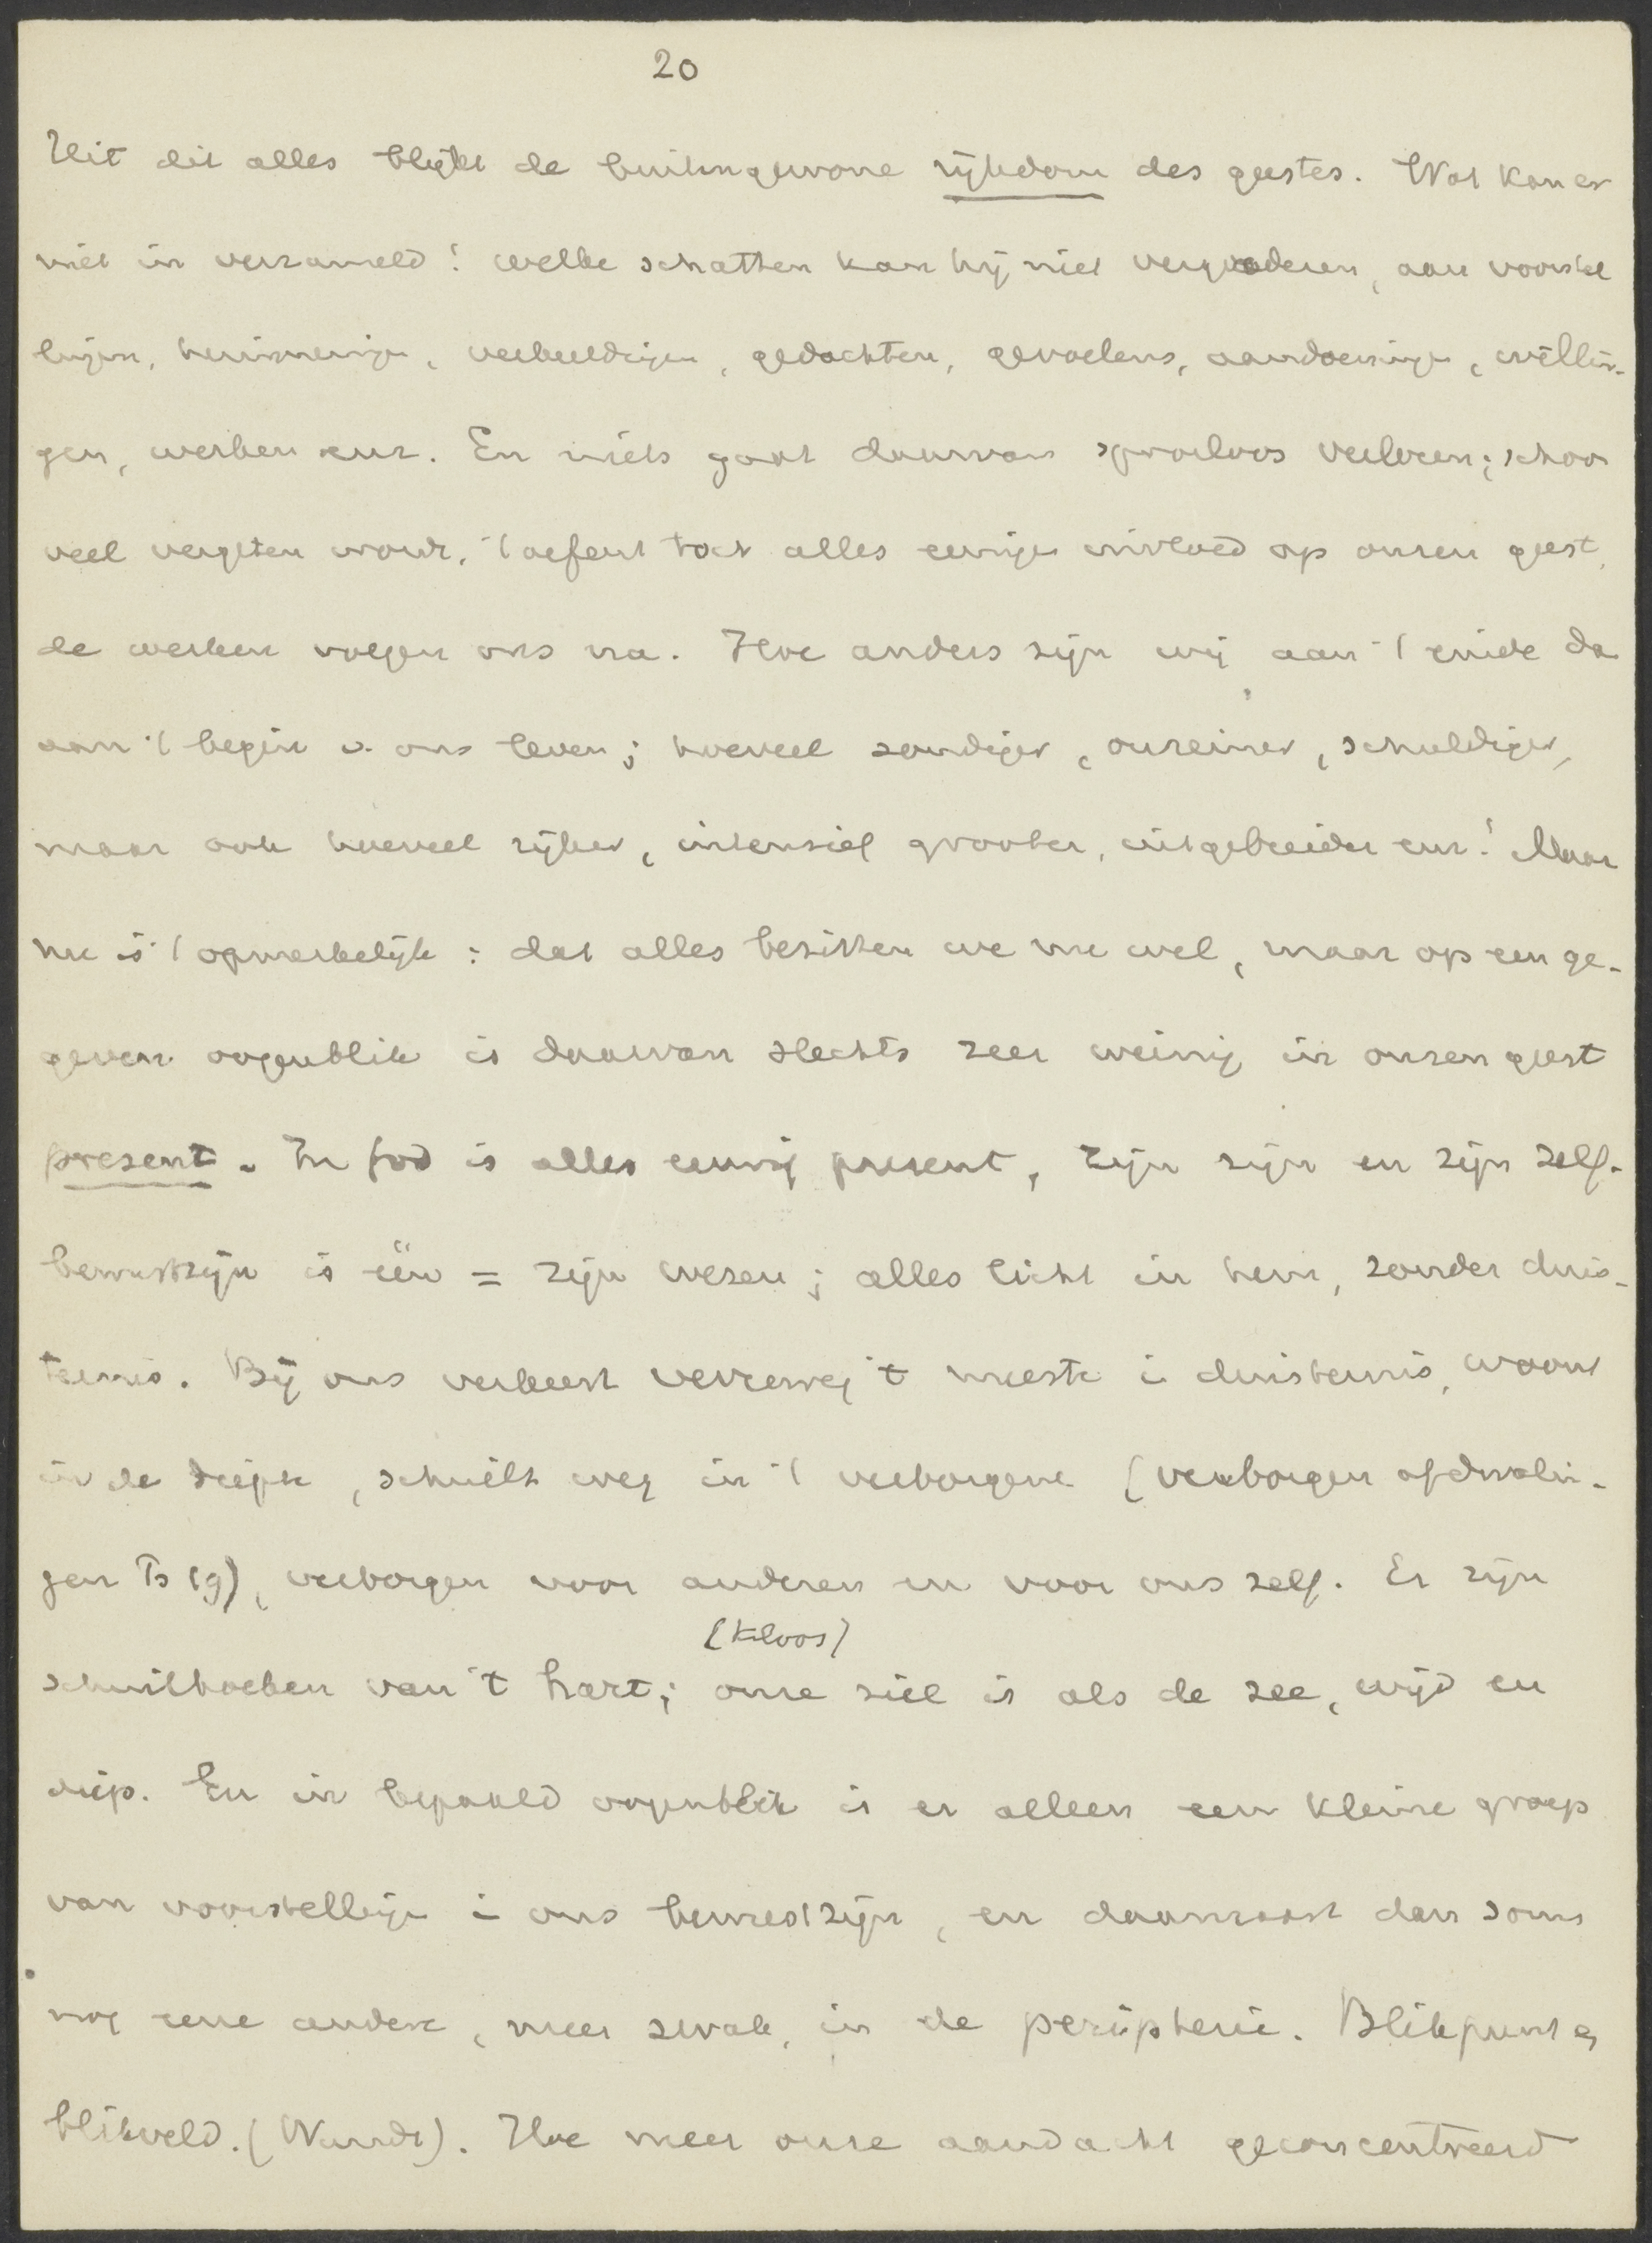 20
Uit dit alles blijkt de buitengewone rijkdom des geestes. Wat kan er
niet in verzameld! welke schatten kan hij niet vergaderen, aan voorstel
lingen, herinneringen, verbeeldingen, gedachten, gevoelens, aandoeningen, willin-
gen, werken enz. En niets gaat daarvan spoorloos verloren; schoon
veel vergeten wordt, 't oefent toch alles eenigen invloed op onzen geest,
de werken volgen ons na. Hoe anders zijn wij aan 't einde da
aan 't begin v. ons leven; hoeveel zondiger, onreiner, schuldiger,
maar ook hoeveel rijker, intensief grooter, uitgebreider enz! Maar
nu is 't opmerkelijk: dat alles bezitten we nu wel, maar op een ge-
geven oogenblik is daarvan slechts zeer weinig in onzen geest
present. In God is alles eeuwig present, zijn zijn en zijn zelf-
bewustzijn is één = zijn wezen; alles licht in hem, zonder duis-
ternis. Bij ons verkeert verreweg 't meeste i duisternis, woont
in de diepte, schuilt weg in 't verborgene (verborgen afdwalin-
gen Ps 19), verborgen voor anderen en voor ons zelf. Er zijn
(Kloos)
schuilhoeken van 't hart; onze ziel is als de zee, wijd en
diep. En in bepaald oogenblik is er alleen een kleine groep
van voorstellingen i ons bewustzijn, en daarnaast dan soms
nog eene andere, meer zwak, in de peripherie. Blikpunt en
blikveld. (Wundt). Hoe meer onze aandacht geconcentreerd